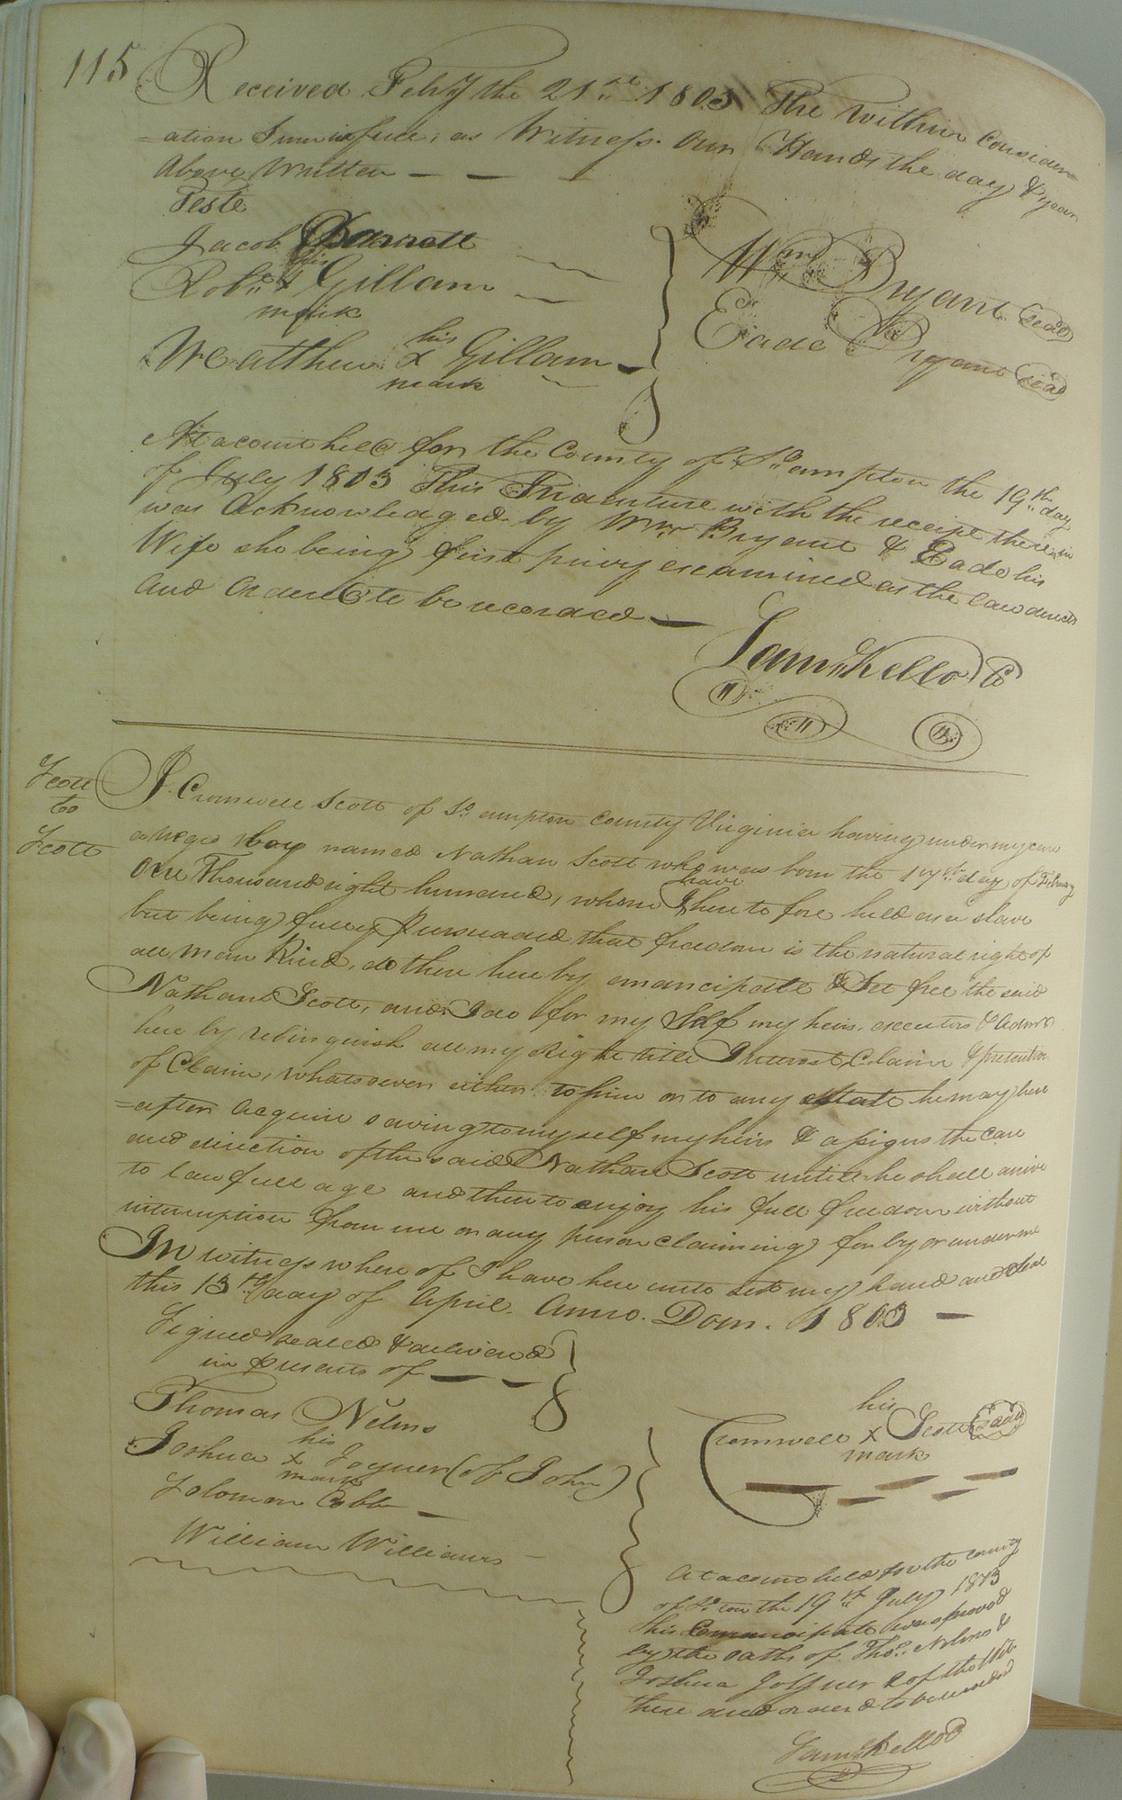 115
Received Feby the 21st 1803 The Within Consider
=ation Sum in full, as Witness our Hands the day & year
Above Written
Teste
Jacob Barrett
his
Robt X Gillam
mark
his
Matthew X Gillam
mark
Wm Bryant Seal
Eade Bryant Seal
At a court held for the County of So.ampton the 19th day
of July 1803 This Indenture with the receipt there in
was Acknowledged by Wm Bryant & Eade his
Wife she being first privy examined as the law directs
and Ordered to be recorded
Saml Kello C
Scott
to
Scott
I Cromwell Scott of So.ampton County Virginia having under my care
a Negro boy named Nathan Scott who was born the 17th day of Febuary
One Thousand eight hundred, whom I have here to fore held as a slave
but being fully Perswaded that freedom is the natural right of
all man Kind, do then here by emancipate & Set free the said
Nathan Scott, and I do for my Self my heirs, executors & Admrs
here by relinquish all my Right title Interest Claim & pretention
of Claim, whatsoever either to him or to any estate he may here
=after acquire saving to myself my heirs & assigns the care
and direction of the said Nathan Scott untill he shall arive
to lawfull age and then to enjoy his full freedom without
interruption from me or any person claiming for by or under me
In witness where of I have here unto set my hand and seal
this 13th day of April. Anno. Dom. 1803
Signed sealed & delivered
in presents of
Thomas Nelms
his
Joshua X Joyner (of John)
mark
Solomon Cobb
William Williams
his
Cromwell X Scott Seal
mark
At a court held for the county
of So.ton the 19th July 1803
this Emancipate was proved
by the oaths of Thos. Nelms &
Joshua Joyner 2 of the Wit
there and ordered to be recorded
Saml Kello C